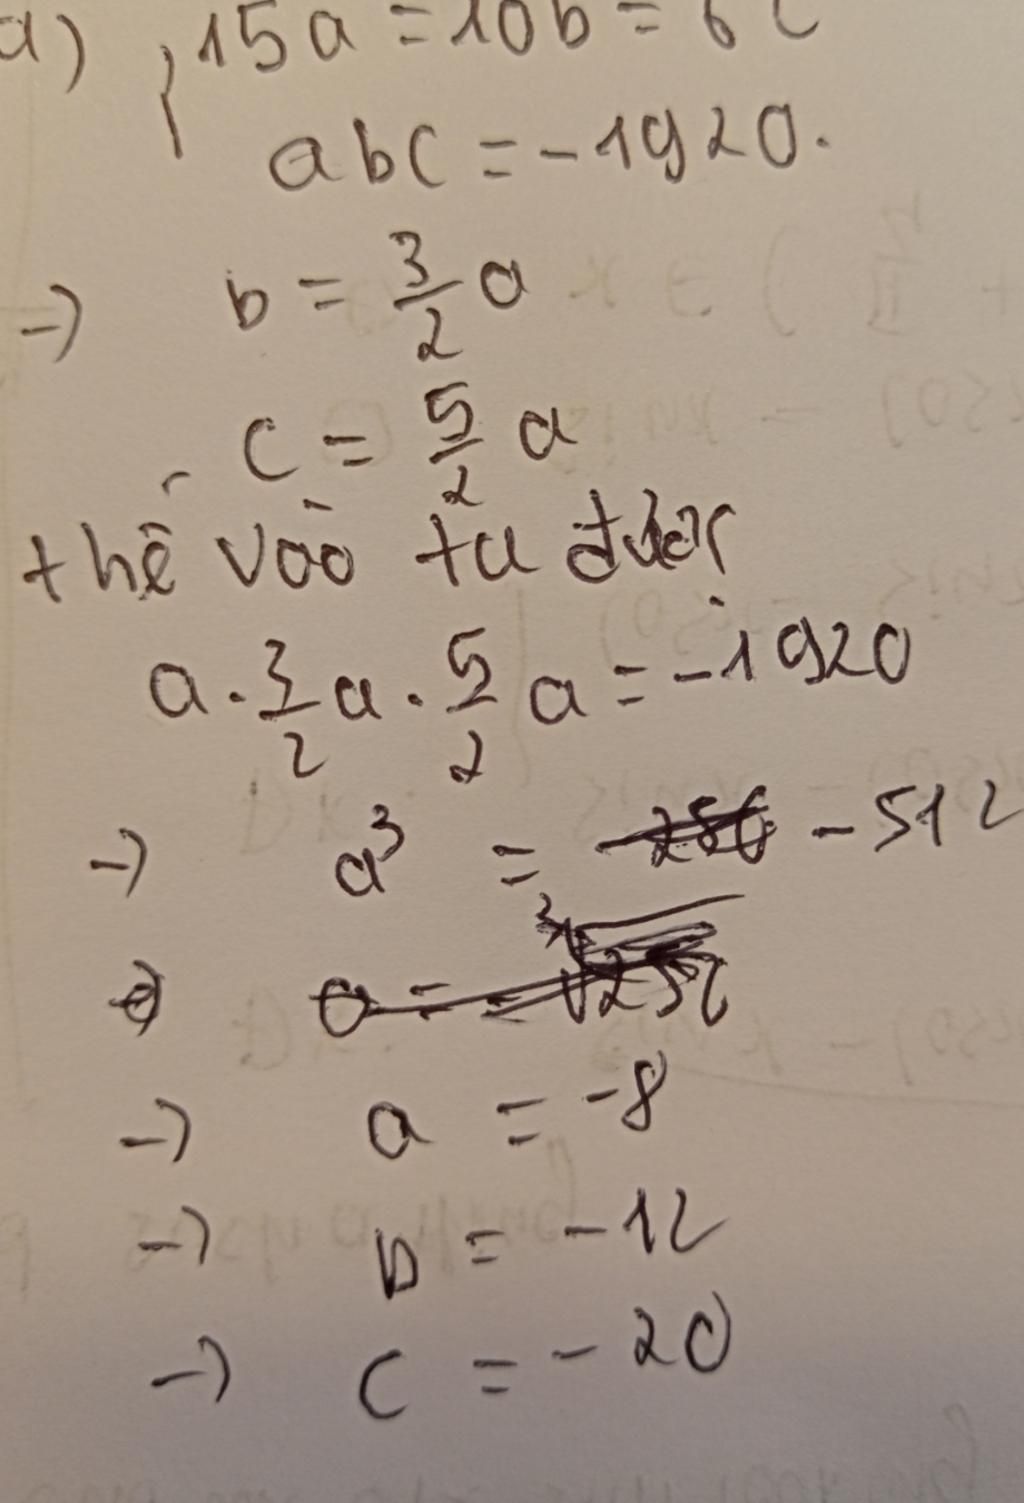 a) { 15a = 10b = 6c
abc = -1920.
→ b = 3/2 a
c = 5/2 a
thế vào ta được
a . 3/2 a . 5/2 a = -1920
→ a³ = -512
→ a = -8
→ b = -12
→ c = -20